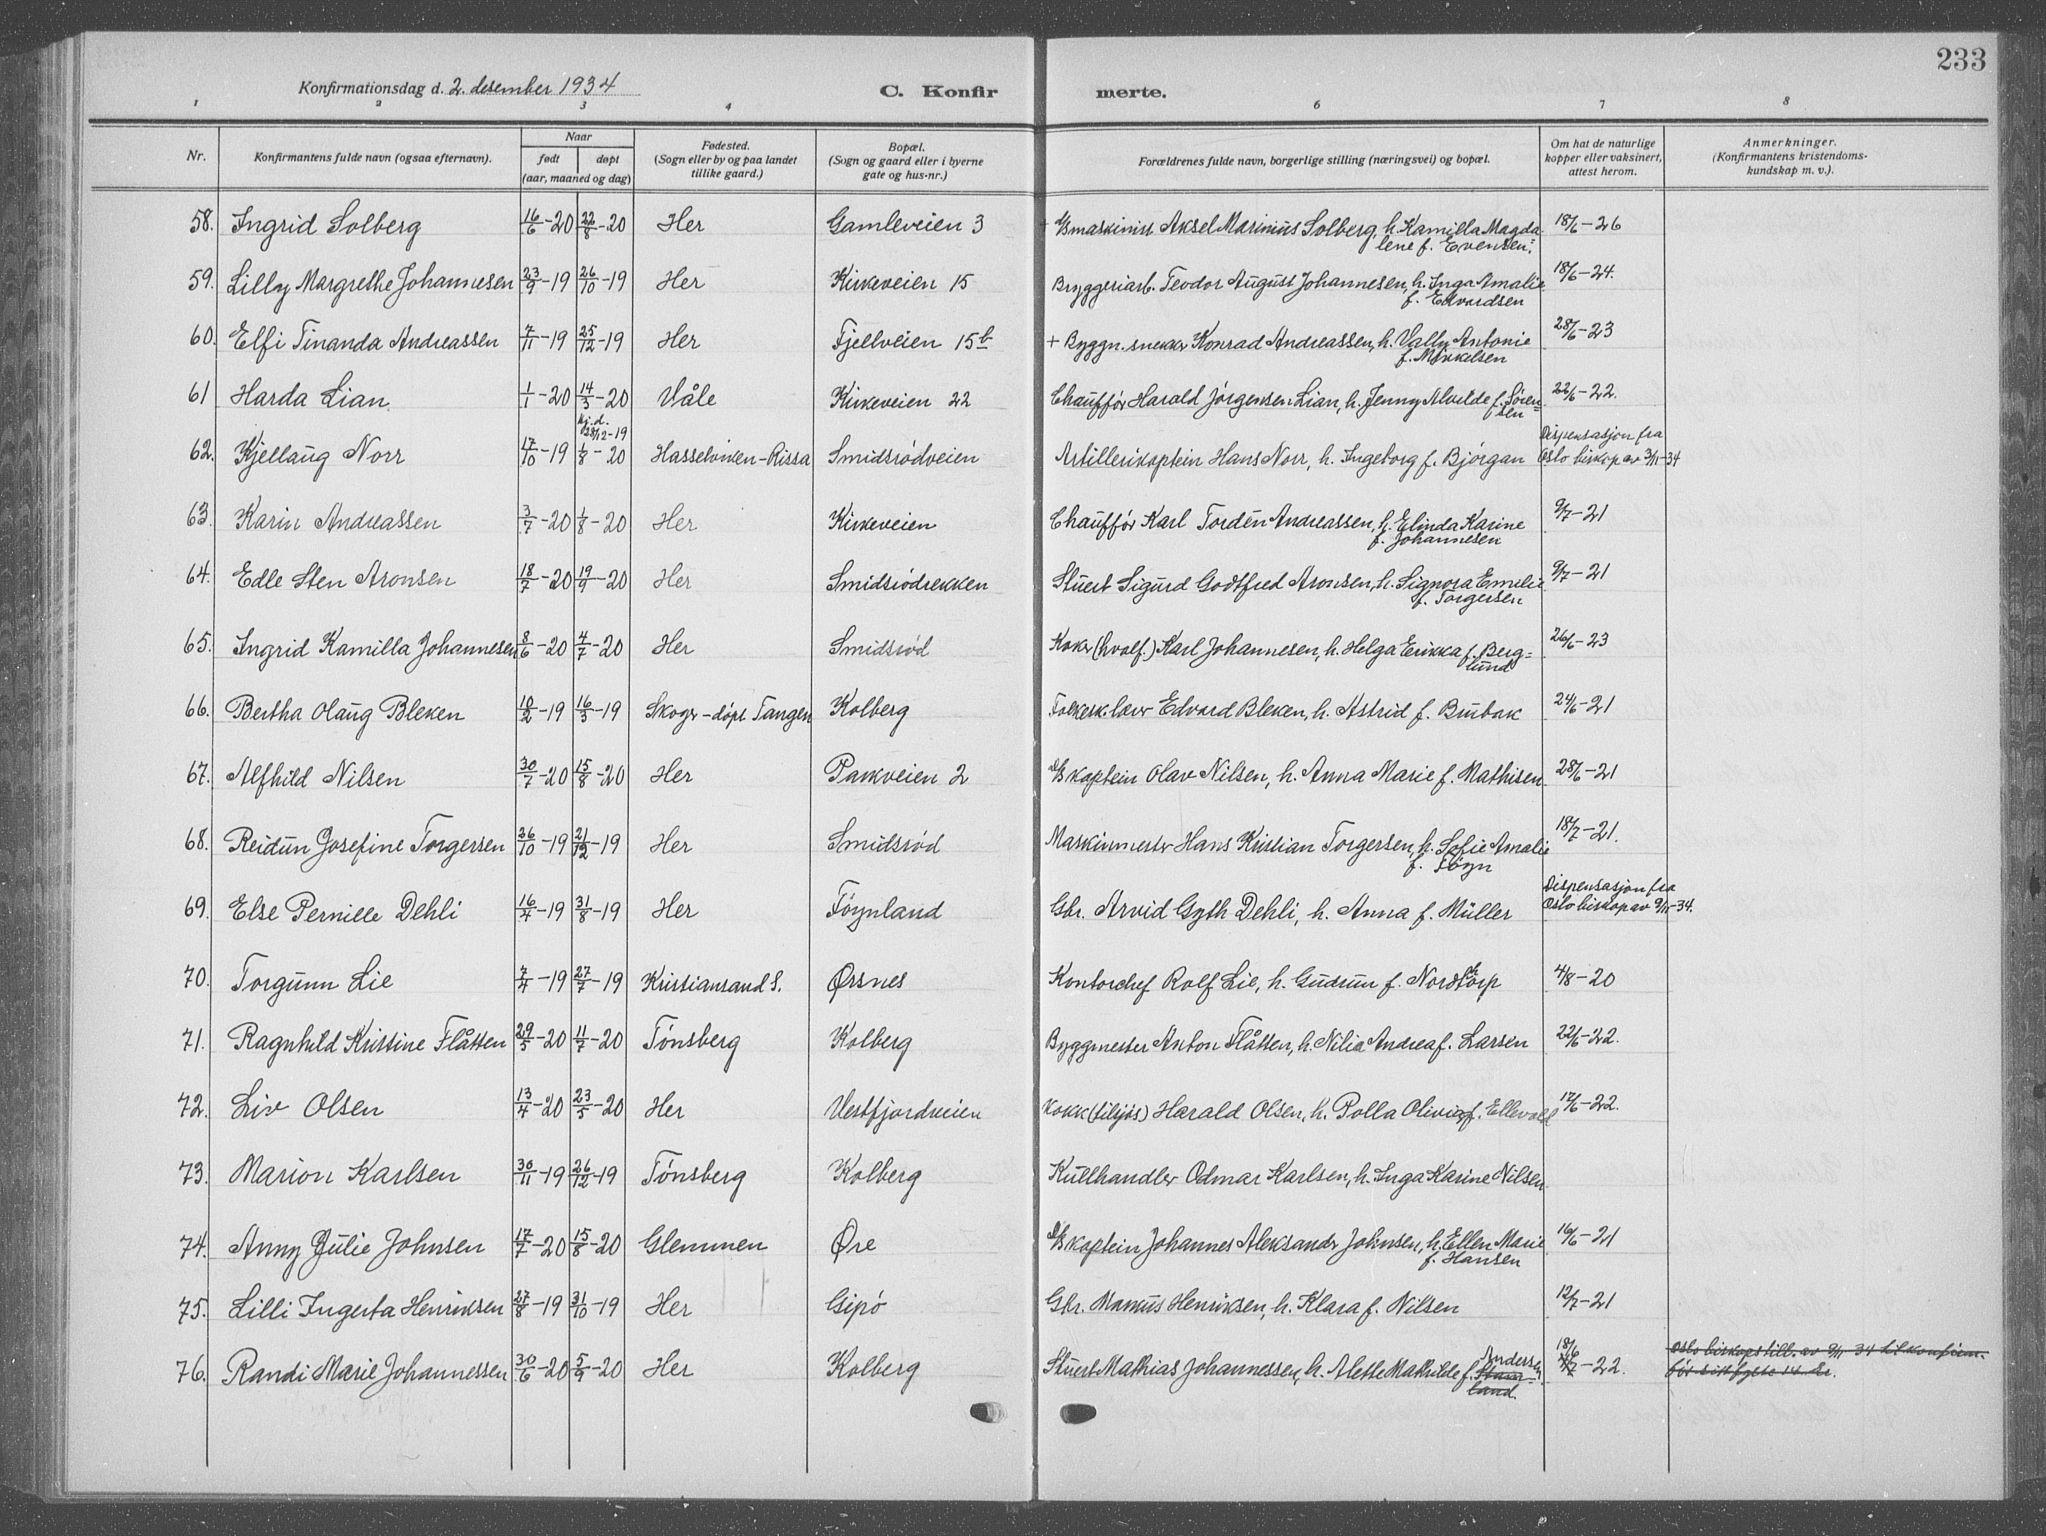 233
Konfirmationsdag d. 2. desember 1934
C. Konfir merte.
1 2 3 4 6 7 8
Nr. Konfirmantens fulde navn (ogsaa efternavn). Naar født døpt (aar, maaned og dag) Fødested. (Sogn eller by og paa landet tillike gaard.) Bopæl. (Sogn og gaard eller i byerne gate og hus-nr.) Forældrenes fulde navn, borgerlige stilling (næringsvei) og bopæl. Om hat de naturlige kopper eller vaksinert, attest herom. Anmerkninger. (Konfirmantens kristendoms-kundskap m. v.).
58. Ingrid Solberg 16/6-20 22/8-20 Her Gamleveien 3 maskinist Aksel Marinius Solberg, h. Kamilla Magdalene f. Evensen. 18/6-26
59. Lilly Margrethe Johannesen 23/9-19 26/10-19 Her Kirkeveien 15 Bryggeriarb. Teodor August Johannesen, h. Inga Amalie f. Edvardsen 18/6-24.
60. Elfi Tinanda Andreassen 7/11-19 25/12-19 Her Fjellveien 15b + Byggn.snekker Konrad Andreassen, h. Vally Antonie f. Mikkelsen 28/6-23
61 Harda Lian 1/1-20 14/3-20 Våle Kirkeveien 22 Chauffór Harald Jørgensen Lian, h. Jenny Alvilde f. Sørensen 22/6-22.
62. Kjellaug Norr 17/10-19 hj.d. 28/12-19 1/8-20 Hasselviken-Rissa Smidsrødveien Artillerikaptein Hans Norr, h. Ingeborg f. Bjórgan Dispensasjon fra Oslo biskop av 3/11-34
63. Karin Andreassen 3/7-20 1/8-20 Her Kirkeveien Chauffór Karl Tordun Andreassen, h. Elinda Karine f. Johannesen 9/7-21
64. Edle Sten Aronsen 18/7-20 19/9-20 Her Smidsrødrekken Stuert Sigurd Godtfred Aronsen, h. Signora Emelie f. Torgersen 9/7-21
65. Ingrid Kamilla Johannesen 8/6-20 4/7-20 Her Smidsrød Kokk (hvalf.) Karl Johannesen, h. Helga Erikka f. Berglund 26/6-23
66. Bertha Olaug Bleken 10/2-19 16/3-19 Skoger-døpt Tangen Kolberg Folkesk.lærer Edvard Bleken, h. Astrid f. Brubak 24/6-21
67. Alfhild Nilsen 30/7-20 15/8-20 Her Parkveien 2 kaptein Olav Nilsen, h. Anna Marie f. Mathisen 28/6-21
68. Reidun Josefine Torgersen 26/10-19 21/12-19 Her Smidsrød Maskinmester Hans Kristian Torgersen, h. Sofie Amalie f. Föyn 18/7-21.
69. Else Pernille Dehli 16/4-19 31/8-19 Her Föynland Gbr. Arvid Gyth Dehli, h. Anna f. Müller Dispensasjon fra Oslo biskop av 9/11-34.
70. Torgunn Lie 7/4-19 27/7-19 Kristiansand S. Ørsnes Kontorchef Rolf Lie, h. Gudrun f. Nordtorp 4/8-20
71. Ragnhild Kristine Flåtten 29/5-20 11/7-20 Tønsberg Kolberg Byggmester Anton Flåtten, h. Nilia Andrea f. Larsen 22/6-22.
72. Liv Olsen 13/4-20 23/5-20 Her Vestfjordveien Kokk (tilsjøs) Harald Olsen, h. Polla Olivia f. Ellevold 17/6-22.
73. Marion Karlsen 30/11-19 26/12-19 Tønsberg Kolberg Kullhandler Odmar Karlsen, h. Inga Karine Nilsen
74. Anny Julie Johnsen 17/7-20 15/8-20 Glemmen Øre kaptein Johannes Aleksander Johnsen, h. Ellen Marie f. Hansen 16/6-21
75. Lilli Ingerta Henriksen 27/8-19 31/10-19 Her Gipø Gbr. Markus Henriksen, h. Klara f. Nilsen 12/7-21
76. Randi Marie Johannessen 30/6-20 5/9-20 Her Kolberg Stuert Mathias Johannessen, h. Alette Mathilde f. Andersen 18/6-22. Oslo biskops till. av 9/11 34 til konfirm. før sitt fylte 14 år.